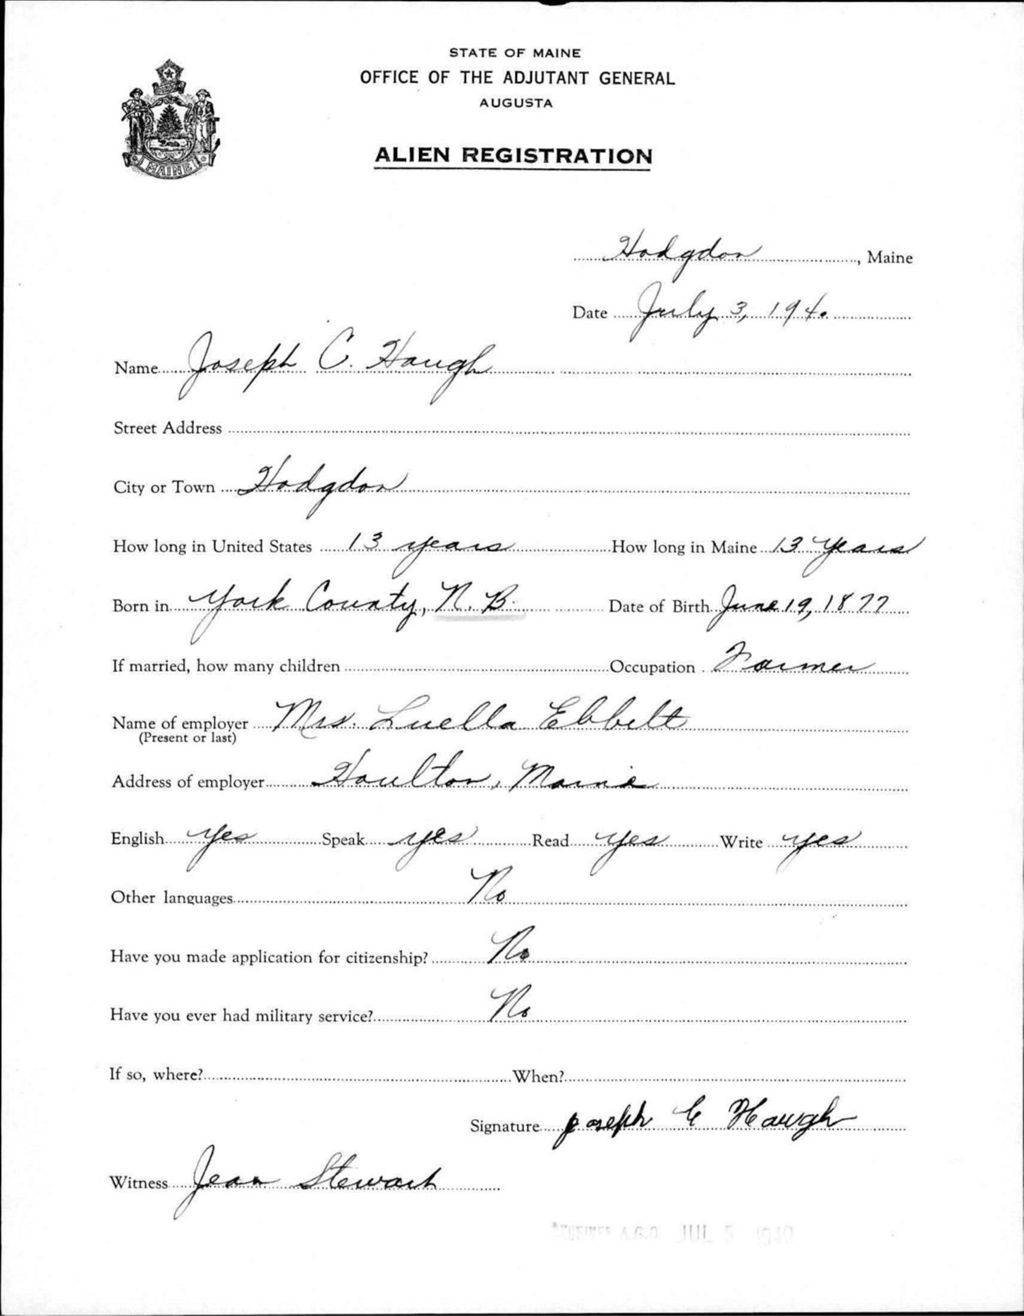 STATE OF MAINE
OFFICE OF THE ADJUTANT GENERAL
AUGUSTA
ALIEN REGISTRATION
MAINE
Hodgdon, Maine
Date July 3, 1940
Name Joseph C. Haugh
Street Address
City or Town Hodgdon
How long in United States 13 years How long in Maine 13 Years
Born in York County, N. B. Date of Birth June 19, 1877
If married, how many children Occupation Farmer
Name of employer Mrs. Luella Ebbett
(Present or last)
Address of employer Houlton, Maine
English Yes Speak yes Read Yes Write yes
Other languages No
Have you made application for citizenship? No
Have you ever had military service? No
If so, where? When?
Signature Joseph C Haugh
Witness Jean Stewart
A.G.O. JUL 5 1940